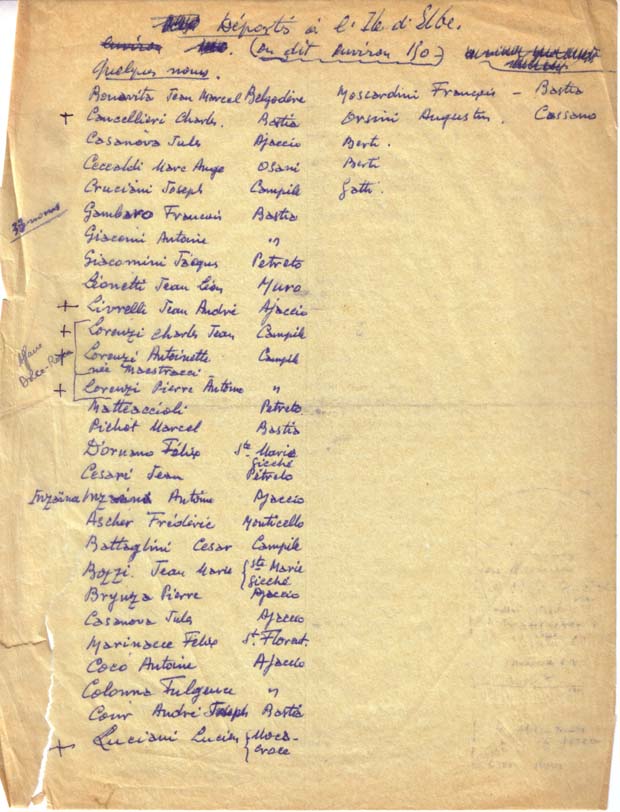 Déportés à l'Ile d'Elbe.
environ (on dit environ 150)
Quelques noms.
Bonavita Jean Marcel Belgodère
+ Cancellieri Charles. Bastia
Casanova Jules Ajaccio
Ceccaldi Marc Ange Osani
Cruciani Joseph Campile
33 noms
Gambaro François Bastia
Giaconi Antoine "
Giacomini Jacques Petreto
Lionetti Jean Léon Muro
+ Livrelli Jean André Ajaccio
+ Lorenzi Charles Jean Campile
+ Lorenzi Antoinette Campile
née Maestracci
+ Lorenzi Pierre Antoine "
Matteaccioli Petreto.
Pichot Marcel Bastia
D'Ornano Félix Ste Marie
Sicché
Cesari Jean Petreto
Inzaïna Inzaina Antoine Ajaccio
Ascher Frédéric Monticello
Battaglini Cesar Campile
Bozzi. Jean Marie Ste Marie
Sicché
Brynza Pierre Ajaccio
Casanova Jules Ajaccio
Marinacce Félix St. Florent.
Coco Antoine Ajaccio
Colonna Fulgence "
Cour André Joseph Bastia
+ Luciani Lucien Moca-
Croce
Moscardini François - Bastia
Orsini Augustin. Cassano
Berti.
Berti
Gatti.